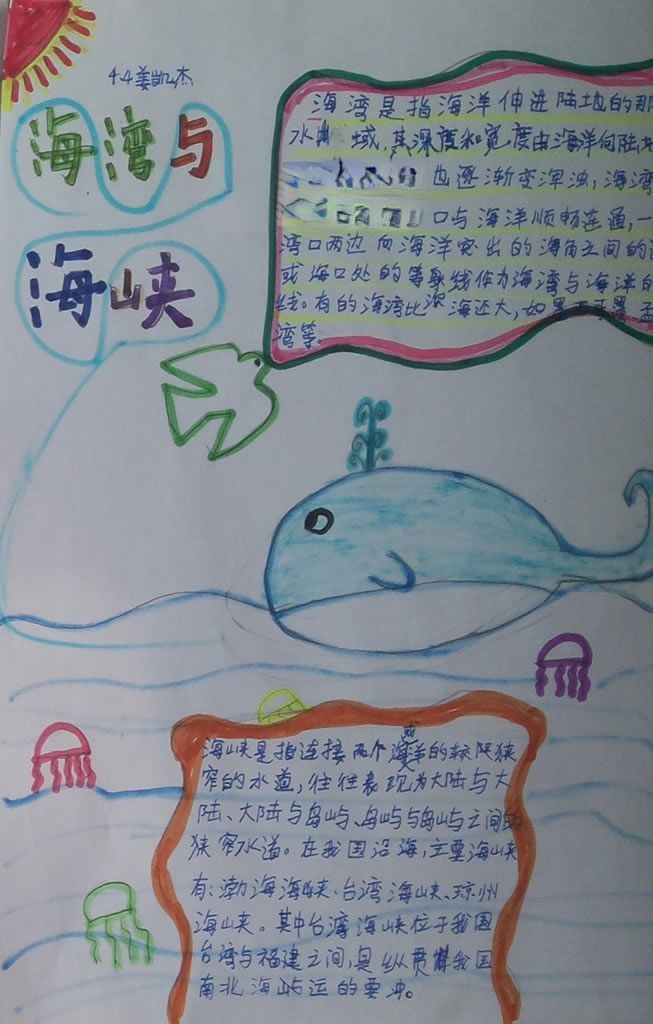 4.4姜凯杰
海湾与
海峡
海湾是指海洋伸进陆地的那
水 域,其深度和宽度由海洋向陆地
也逐渐变浑浊,海湾
口与海洋顺畅连通,一
湾口两边向海洋突出的海角之间的
或海口处的等深线作为海湾与海洋的
线。有的海湾比 海还大,如 孟
湾等。
海峡是指连接两个海或洋的较
窄的水道,往往表现为大陆与大
陆、大陆与岛屿、岛屿与岛屿之间的
狭窄水道。在我国沿海,主要海峡
有:渤海海峡、台湾海峡、琼州
海峡。其中台湾海峡位于我国
台湾与福建之间,是纵贯我国
南北海 运的要冲。